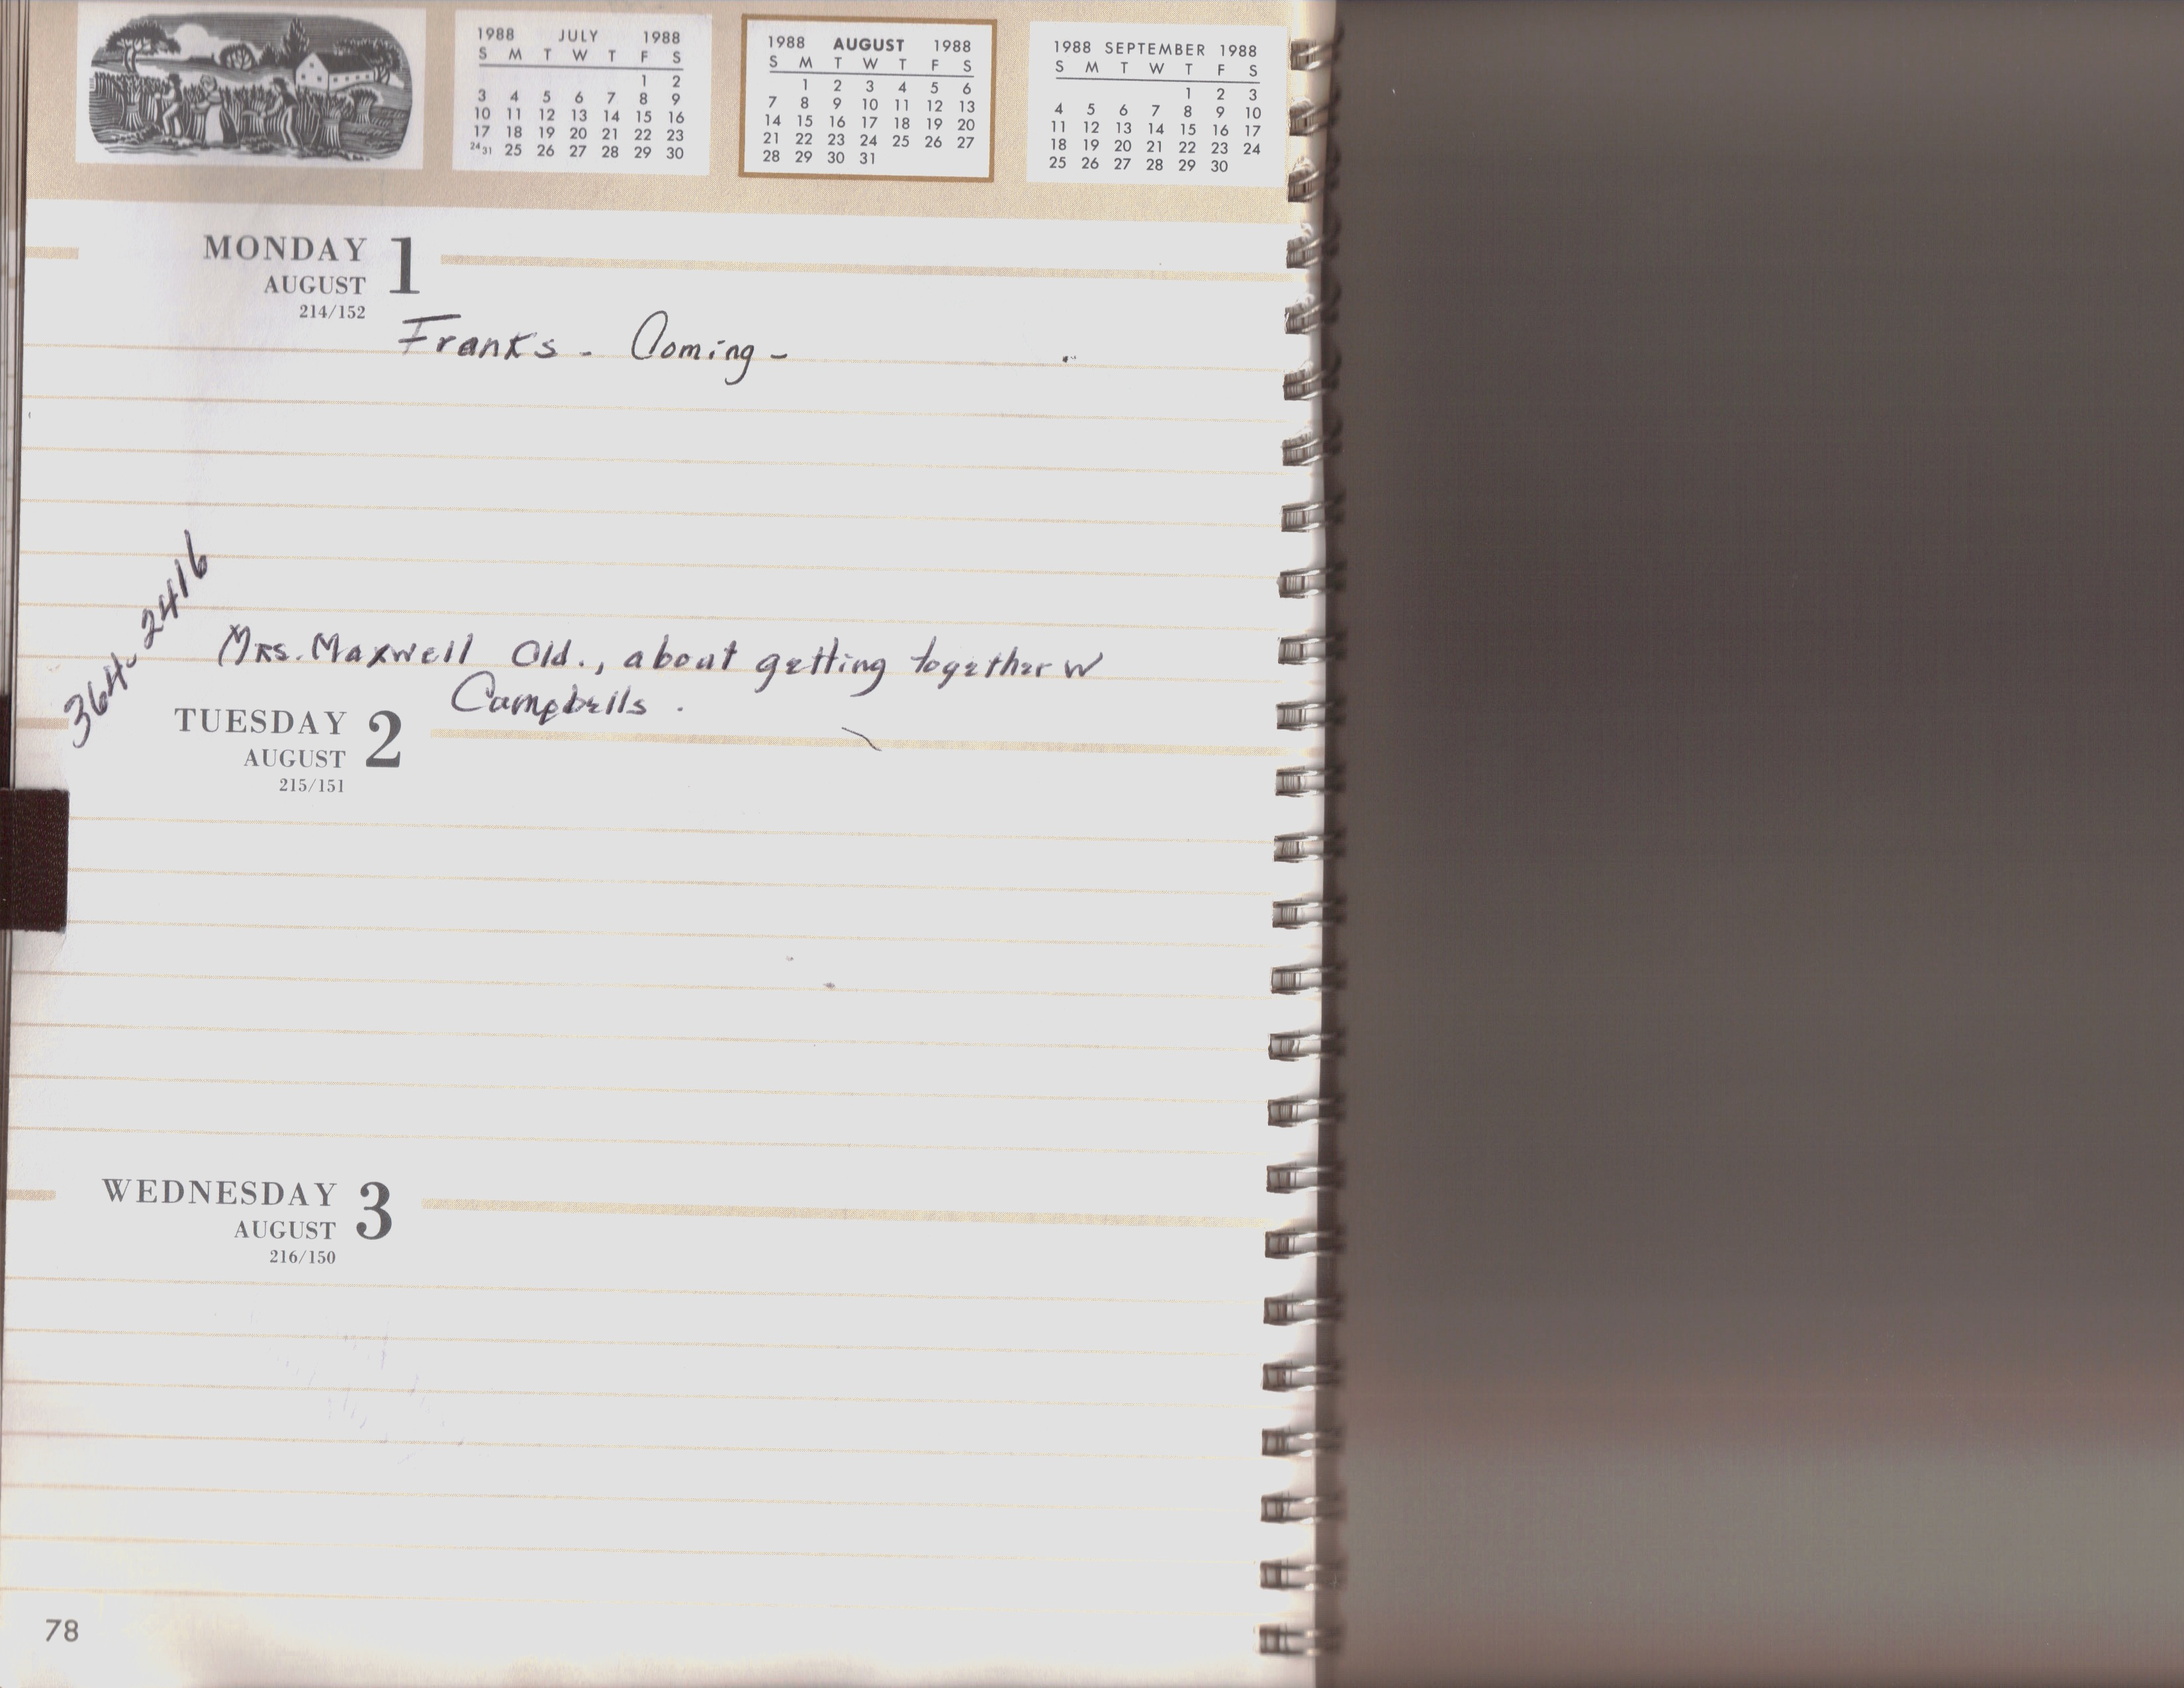 1988 JULY 1988
S M T W T F S
1 2
3 4 5 6 7 8 9
10 11 12 13 14 15 16
17 18 19 20 21 22 23
24 31 25 26 27 28 29 30
1988 AUGUST 1988
S M T W T F S
1 2 3 4 5 6
7 8 9 10 11 12 13
14 15 16 17 18 19 20
21 22 23 24 25 26 27
28 29 30 31
1988 SEPTEMBER 1988
S M T W T F S
1 2 3
4 5 6 7 8 9 10
11 12 13 14 15 16 17
18 19 20 21 22 23 24
25 26 27 28 29 30
MONDAY 1
AUGUST
214/152
Franks - Coming -
364-2416
Mrs. Maxwell Old., about getting together W
Campbells .
TUESDAY 2
AUGUST
215/151
WEDNESDAY 3
AUGUST
216/150
78